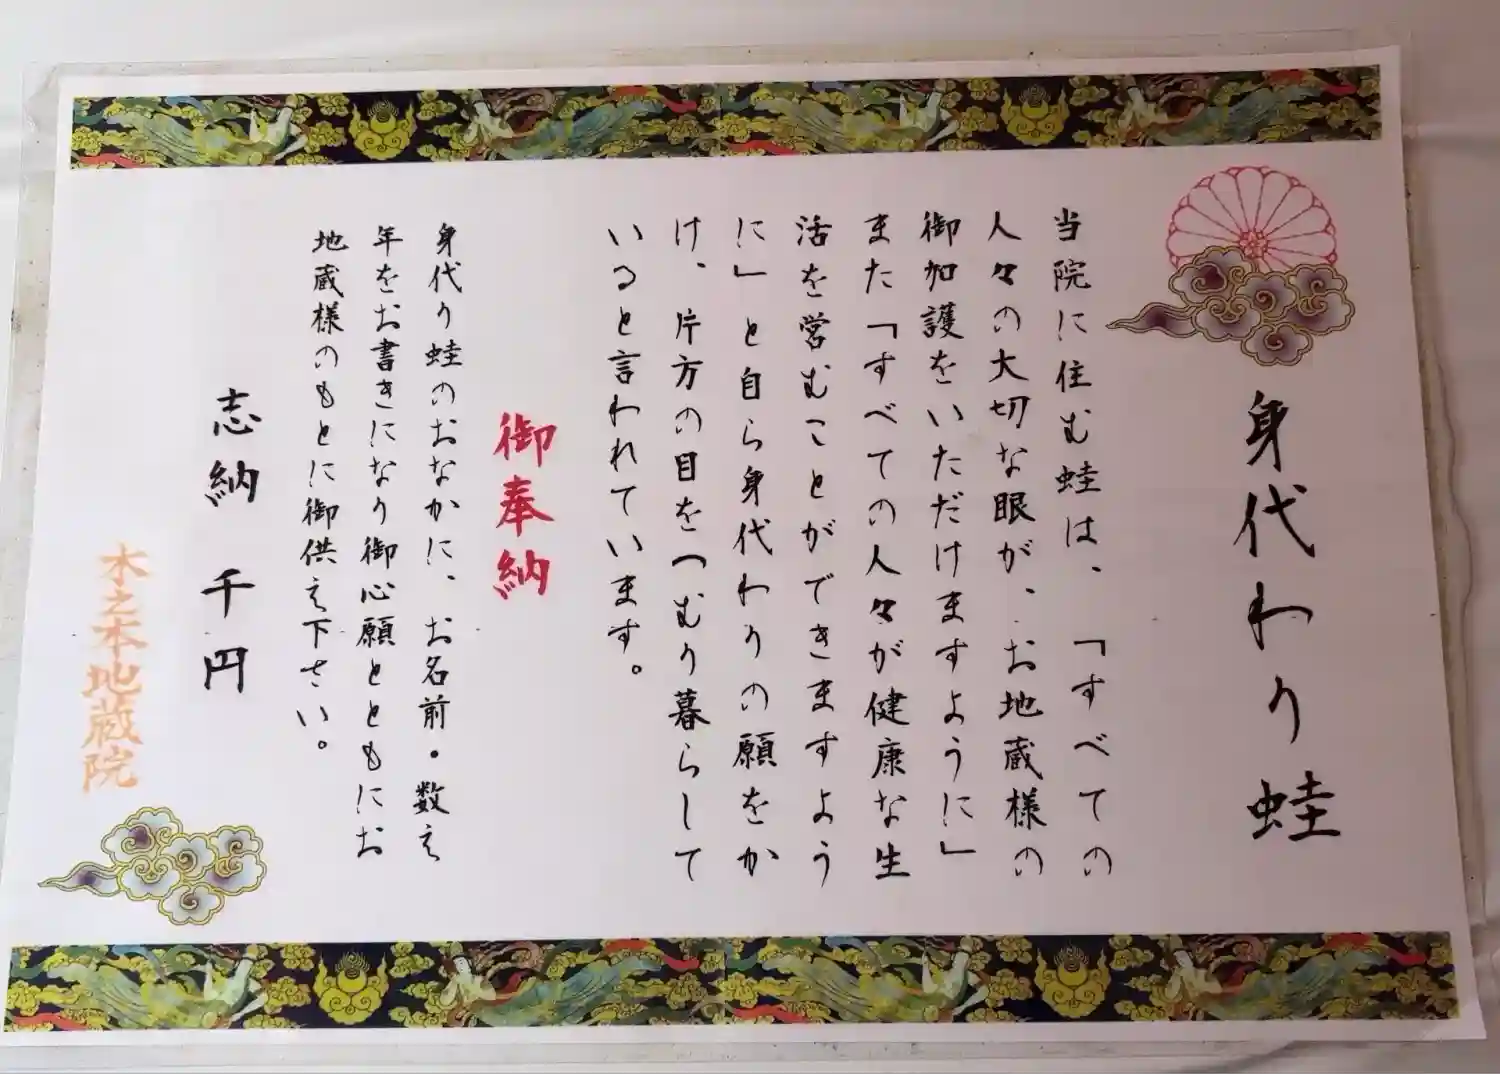 身代わり蛙
当院に住む蛙は、「すべての
人々の大切な眼が、お地蔵様の
御加護をいただけますように」
また「すべての人々が健康な生
活を営むことができますよう
に」と自ら身代わりの願をか
け、片方の目をつむり暮らして
いると言われています。
御奉納
身代り蛙のおなかに、お名前・数え
年をお書きになり御心願とともにお
地蔵様のもとに御供え下さい。
志納 千円
木之本地蔵院